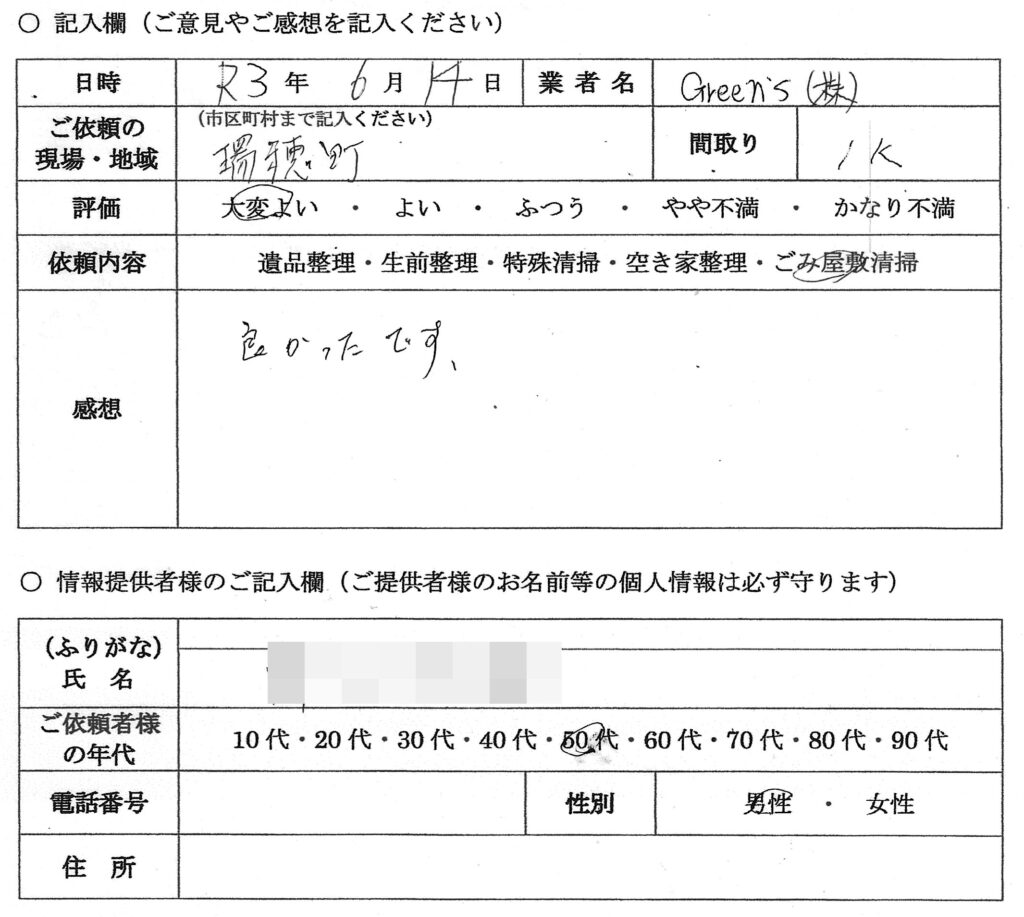 ○ 記入欄（ご意見やご感想を記入ください）
日時 R3年 6月 14日 業者名 Green's (株)
ご依頼の現場・地域 (市区町村まで記入ください) 瑞穂町 間取り 1K
評価 大変よい ・ よい ・ ふつう ・ やや不満 ・ かなり不満
依頼内容 遺品整理・生前整理・特殊清掃・空き家整理・ごみ屋敷清掃
感想 良かったです、
○ 情報提供者様のご記入欄（ご提供者様のお名前等の個人情報は必ず守ります）
（ふりがな）
氏 名
ご依頼者様の年代 10代・20代・30代・40代・50代・60代・70代・80代・90代
電話番号 性別 男性 ・ 女性
住 所